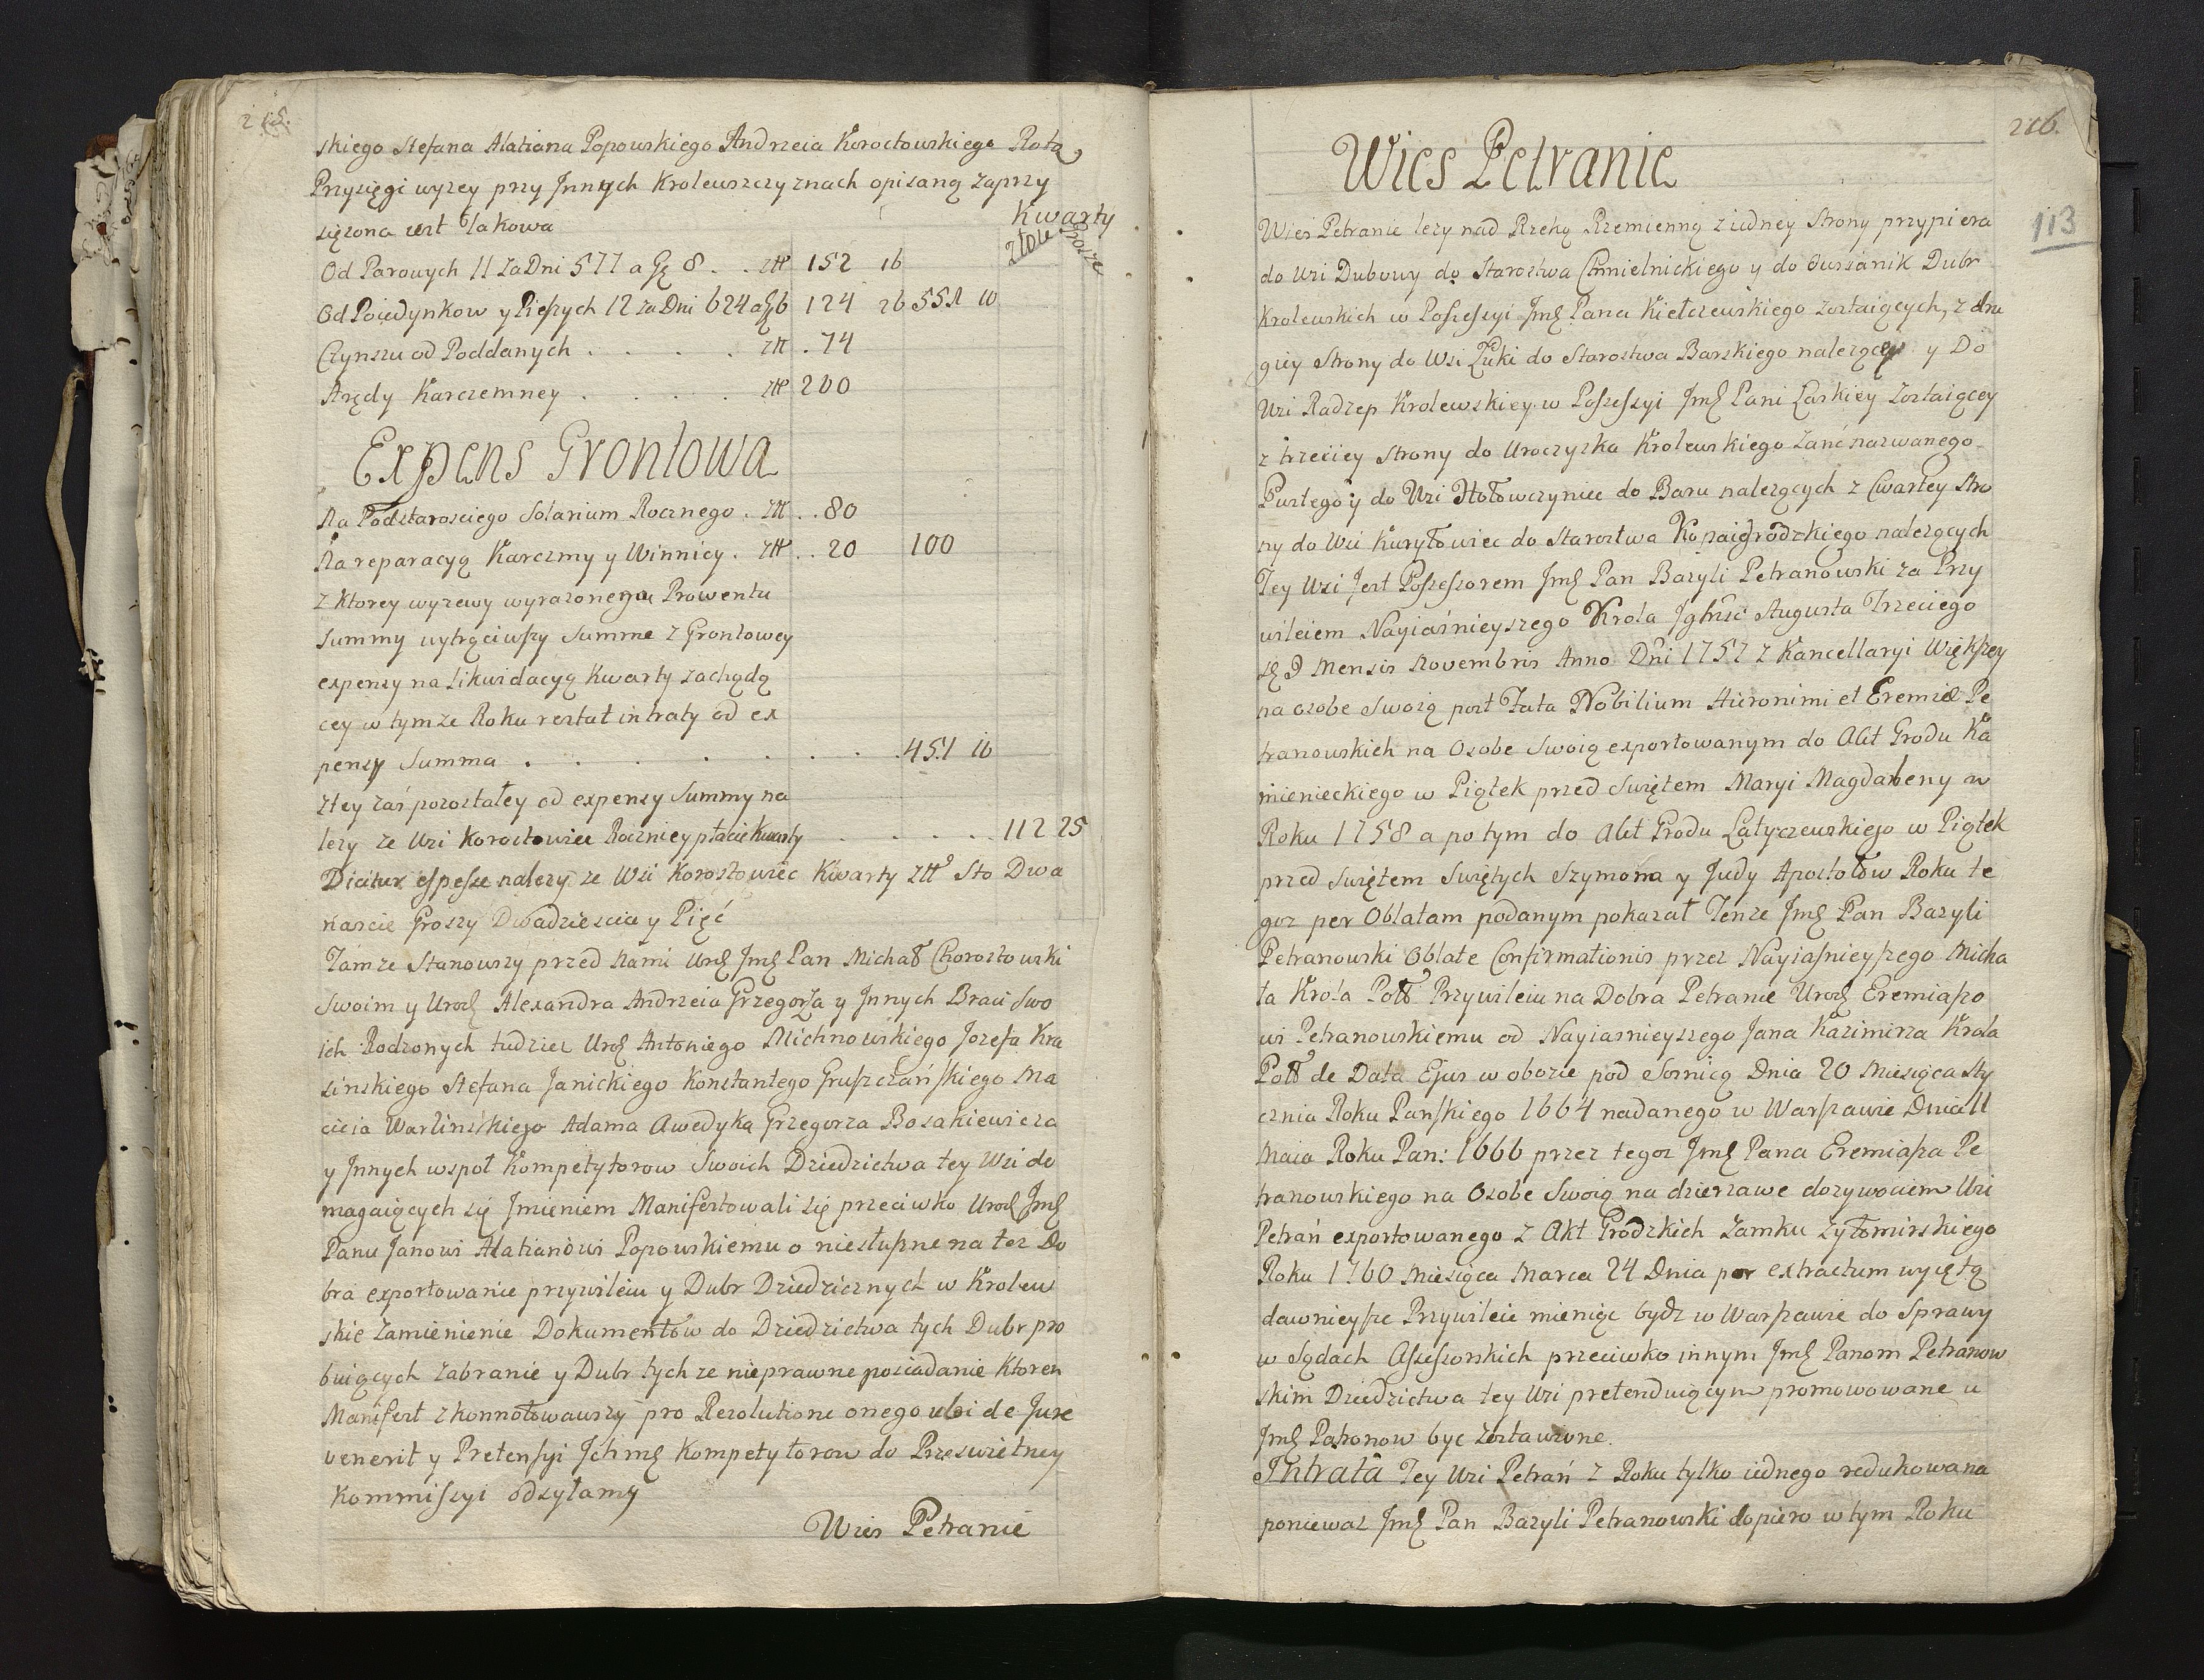 215.
skiego Stefana Alatiana Popowskiego Andrzeia Korostowskiego Rotą
Przysięgi wyzey przy Innych Krolewszczyznach opisaną zaprzy
siężona iest Takowa
Kwarty
Złote Grosze
Od Parowych 11 za Dni 577 a Gł 8 . . złł 152 16
Od Poiedynkow y Pieszych 12 za Dni 624 a Gł 6 124 26 551 10
Czynszu od Poddanych . . . . . złł . 74
Arędy Karczemney . . . . . złł 200
Expens Grontowa
Na Podstarosciego Solarium Rocznego . złł . . 80
Na reparacyą Karczmy y Winnicy . złł . . 20 100
z Ktorey wyzewy wyrazonego Prowentu
Summy wytrąciwszy Summe z Grontowey
expensy na Likwidacyą Kwarty zachądą
cey w tymze Roku restat intraty od ex
pensy Summa . . . . . . . 451 10
z tey zaś pozostałey od expensy Summy na
lezy ze Wsi Korostowiec Roczniey płacić Kwarty . . . . . 112 25
Dicitur espesse nalezy ze Wsi Korostowiec Kwarty złł Sto Dwa
naście Groszy Dwadziescia y Pięć
Tamze Stanowszy przed Nami Urod Jmć Pan Michał Chorostowski
Swoim y Urod Alexandra Andrzeia Grzegorza y Innych Braci Swo
ich Rodzonych tudziez Urod Antoniego Michnowskiego Jozefa Kra
sinskiego Stefana Janickiego Konstantego Gruszczańskiego Ma
cieia Warlińskiego Adama Awedyka Grzegorza Bosakiewicza
y Innych wspoł Kompetytorow Swoich Dziedzictwa tey Wsi do
magaiących się Imieniem Manifestowali się przeciwko Urod Jmć
Panu Janowi Alatianowi Popowskiemu o niesłuszne na tez Do
bra exportowanie przywileiu y Dubr Dziedzicznych w Krolew
skie Zamienienie Dokumentow do Dziedzictwa tych Dubr pro
buiących zabranie y Dubr tychze nieprawne posiadanie Ktoren
Manifest zkonnotowawszy pro Rezolutione onego ubi de Jure
venerit y Pretensyi Ichmć Kompetytorow do Przeswietney
Kommissyi odsyłamy
Wies Petranie
216.
113
Wies Petranie
Wies Petranie lezy nad Rzeką Rzemienną z iedney Strony przypiera
do Wsi Dubowy do Starostwa Chmielnickiego y do Dubr
Krolewskich w Possessyi Jmć Pana Kiełczewskiego zostaiących, z dru
giey Strony do Wsi Łuki do Starostwa Barskiego nalezącey y Do
Wsi Radzep Krolewskiey w Possessyi Jmć Pani Łaskiey zostaiącey
z trzeciey Strony do Uroczyska Krolewskiego nazwanego
Pustego y do Wsi Hołowczyniec do Baru nalezących z Cwartey Stro
ny do Wsi Kuryłowiec do Starostwa Kopaigrodzkiego nalezących
Tey Wsi Jest Possessorem Jmć Pan Bazyli Petranowski za Przy
wileiem Nayiaśnieyszego Krola Augusta Trzeciego
Mensis Novembris Anno Dni 1757 z Kancellaryi Większey
na osobe Swoią post Fata Nobilium Hieronimi et Eremiæ Pe
tranowskich na Osobe Swoią exportowanym do Akt Grodu Ka
mienieckiego w Piątek przed Swiętem Maryi Magdaleny w
Roku 1758 a potym do Akt Grodu Latyczewskiego w Piątek
przed Swiętem Swiętych Szymona y Judy Apostołow Roku te
goz per Oblatam podanym pokazał Tenze Jmć Pan Bazyli
Petranowski Oblate Confirmationis przez Nayiasnieyszego Micha
ła Krola Poll Przywileiu na Dobra Petranie Urod Eremiaszo
wi Petranowskiemu od Nayiasnieyszego Jana Kazimirza Krola
Poll de Data Ejus w obozie pod Sosnicą Dnia 20 Miesiąca Sty
cznia Roku Pańskiego 1664 nadanego w Warszawie Dnia 11
Maia Roku Pan: 1666 przez tegoz Jmć Pana Eremiasza Pe
tranowskiego na Osobe Swoią na dzierzawe dozywociem Wsi
Petrań exportowanego z Akt Grodzkich Zamku Żytomirskiego
Roku 1760 Miesiąca Marca 24 Dnia per extractum wyiętą
dawnieysze Przywileie mieniąc bydz w Warszawie do Sprawy
w Sądach Assessorskich przeciwko innym Jmć Panom Petranow
skim Dziedzictwa tey Wsi pretenduiącym promowowane u
Jmć Patronow być zostawione.
Intrata Tey Wsi Petrań z Roku tylko iednego redukowana
poniewaz Jmć Pan Bazyli Petranowski dopiero w tym Roku